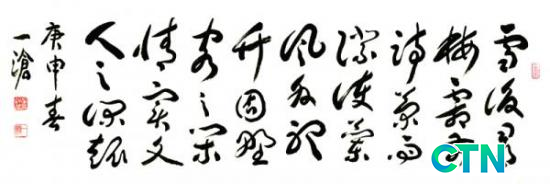 雪後尋
梅霜前
訪菊雨
際護蘭
風外聽
竹固野
客之閒
情實文
人之深趣
庚申春
一滄
CTN